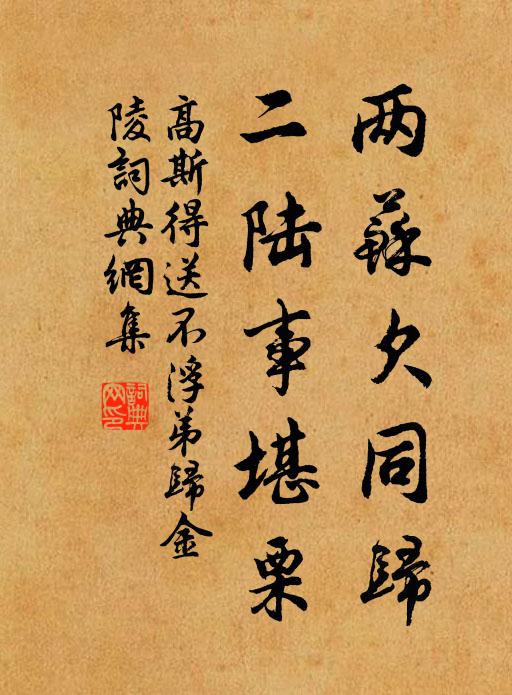 两蘇久同歸
二陆事堪栗
高斯得送不浮弟歸金
陵詞典網集
詞典網印